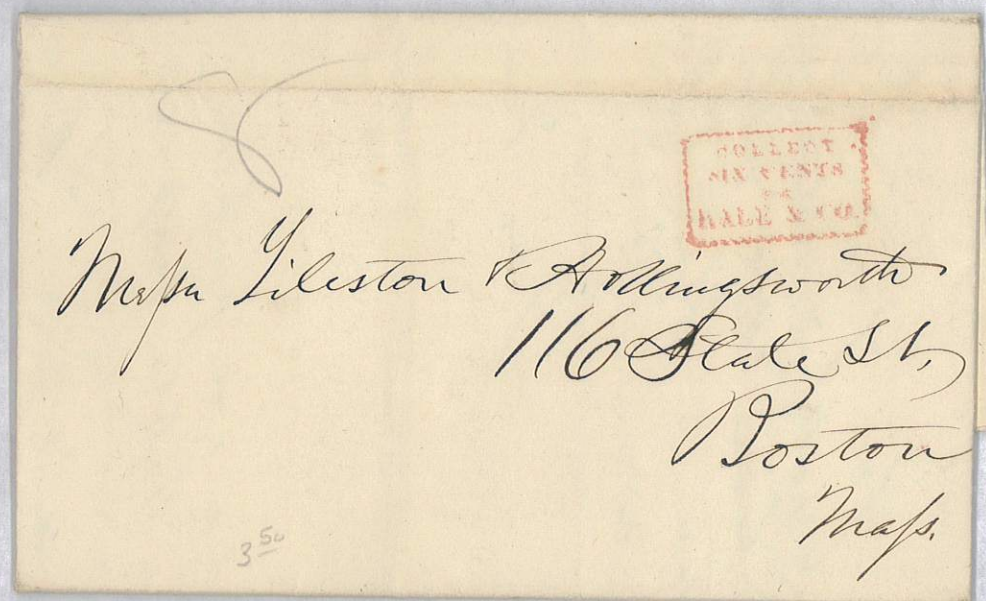 8
COLLECT
SIX CENTS
HALE & CO.
Messrs Tileston & Hollingsworth
116 State St,
Boston
Mass.
3 50